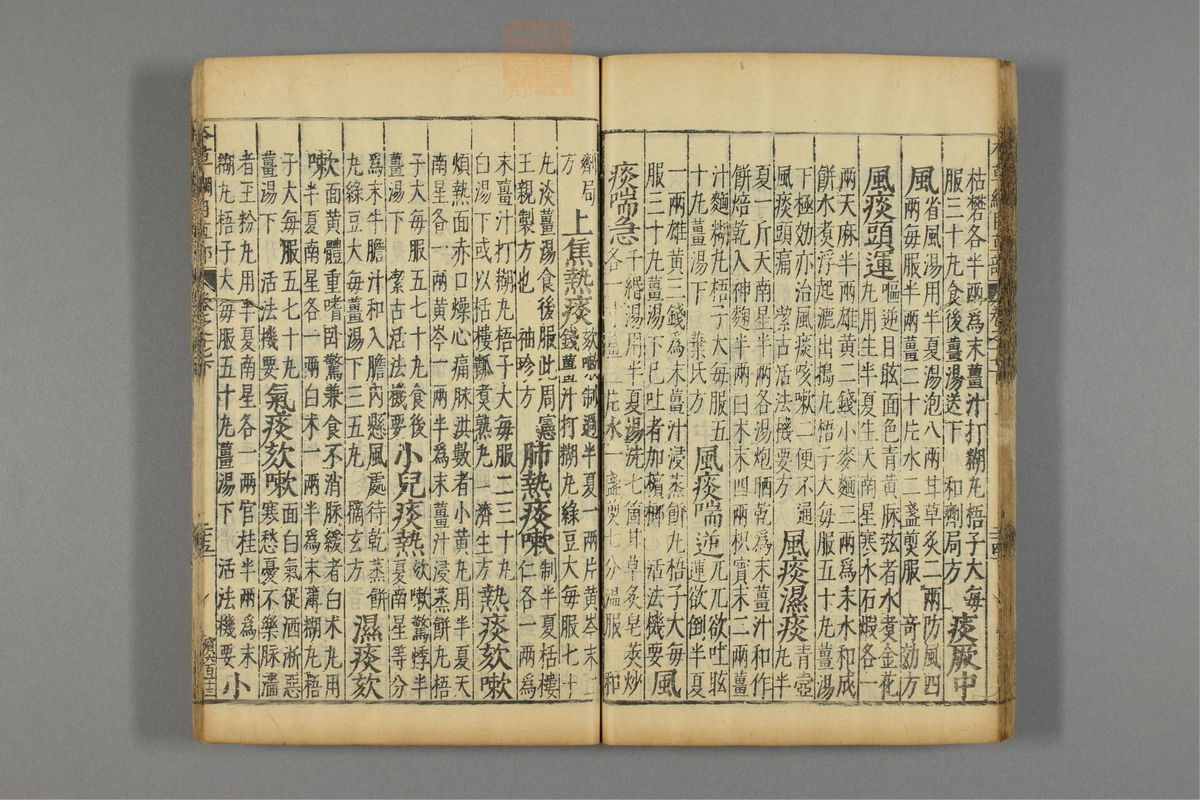 枯礬各半兩爲末薑汁打糊丸梧子大每
服三十丸食後薑湯送下 和劑局方 痰厥中
風省風湯用半夏湯泡八兩甘草炙二兩防風四
兩每服半兩薑二十片水二盞煎服 奇効方
風痰頭運嘔逆目眩面色青黃脉弦者水煮金花
丸用生半夏生天南星寒水石煅各一
兩天麻半兩雄黃二錢小麥麵三兩爲末水和成
餅水煮浮起漉出搗丸梧子大每服五十丸薑湯
下極効亦治風痰咳嗽二便不通
風痰頭痛 潔古活法機要方 風痰濕痰青壺
丸半
夏一斤天南星半兩各湯炮晒乾爲末薑汁和作
餅焙乾入神麴半兩白术末四兩枳實末二兩薑
汁麵糊丸梧子大每服五
十丸薑湯下 葉氏方 風痰喘逆兀兀欲吐眩
運欲倒半夏
一兩雄黃三錢爲末薑汁浸蒸餅丸梧子大每
服三十丸薑湯下已吐者加檳榔 活法機要 風
痰喘急千緡湯用半夏湯洗七箇甘草炙皂莢炒
各一寸薑二片水一盞煎七分溫服 和
劑局
方 上焦熱痰欬嗽制過半夏一兩片黃岑末二
錢薑汁打糊丸綠豆大每服七十
丸淡薑湯食後服此周憲
王親製方也 袖珍方 肺熱痰嗽制半夏栝樓
仁各一兩爲
末薑汁打糊丸梧子大每服二三十丸
白湯下或以栝樓瓤煮熟丸 濟生方 熱痰欬嗽
煩熱面赤口燥心痛脉洪數者小黃丸用半夏天
南星各一兩黃岑一兩半爲末薑汁浸蒸餅丸梧
子大每服五七十丸食後
薑湯下 潔古活法機要 小兒痰熱欬嗽驚悸半
夏南星等分
爲末牛膽汁和入膽內懸風處待乾蒸餅
丸綠豆大每薑湯下三五丸 摘玄方 濕痰欬
嗽面黃體重嗜困驚兼食不消脉緩者白术丸用
半夏南星各一兩白术一兩半爲末薄糊丸梧
子大每服五七十丸
薑湯下 活法機要 氣痰欬嗽面白氣促洒淅惡
寒愁憂不樂脉濇
者玉粉丸用半夏南星各一兩官桂半兩爲末
糊丸梧子大每服五十丸薑湯下 活法機要 小